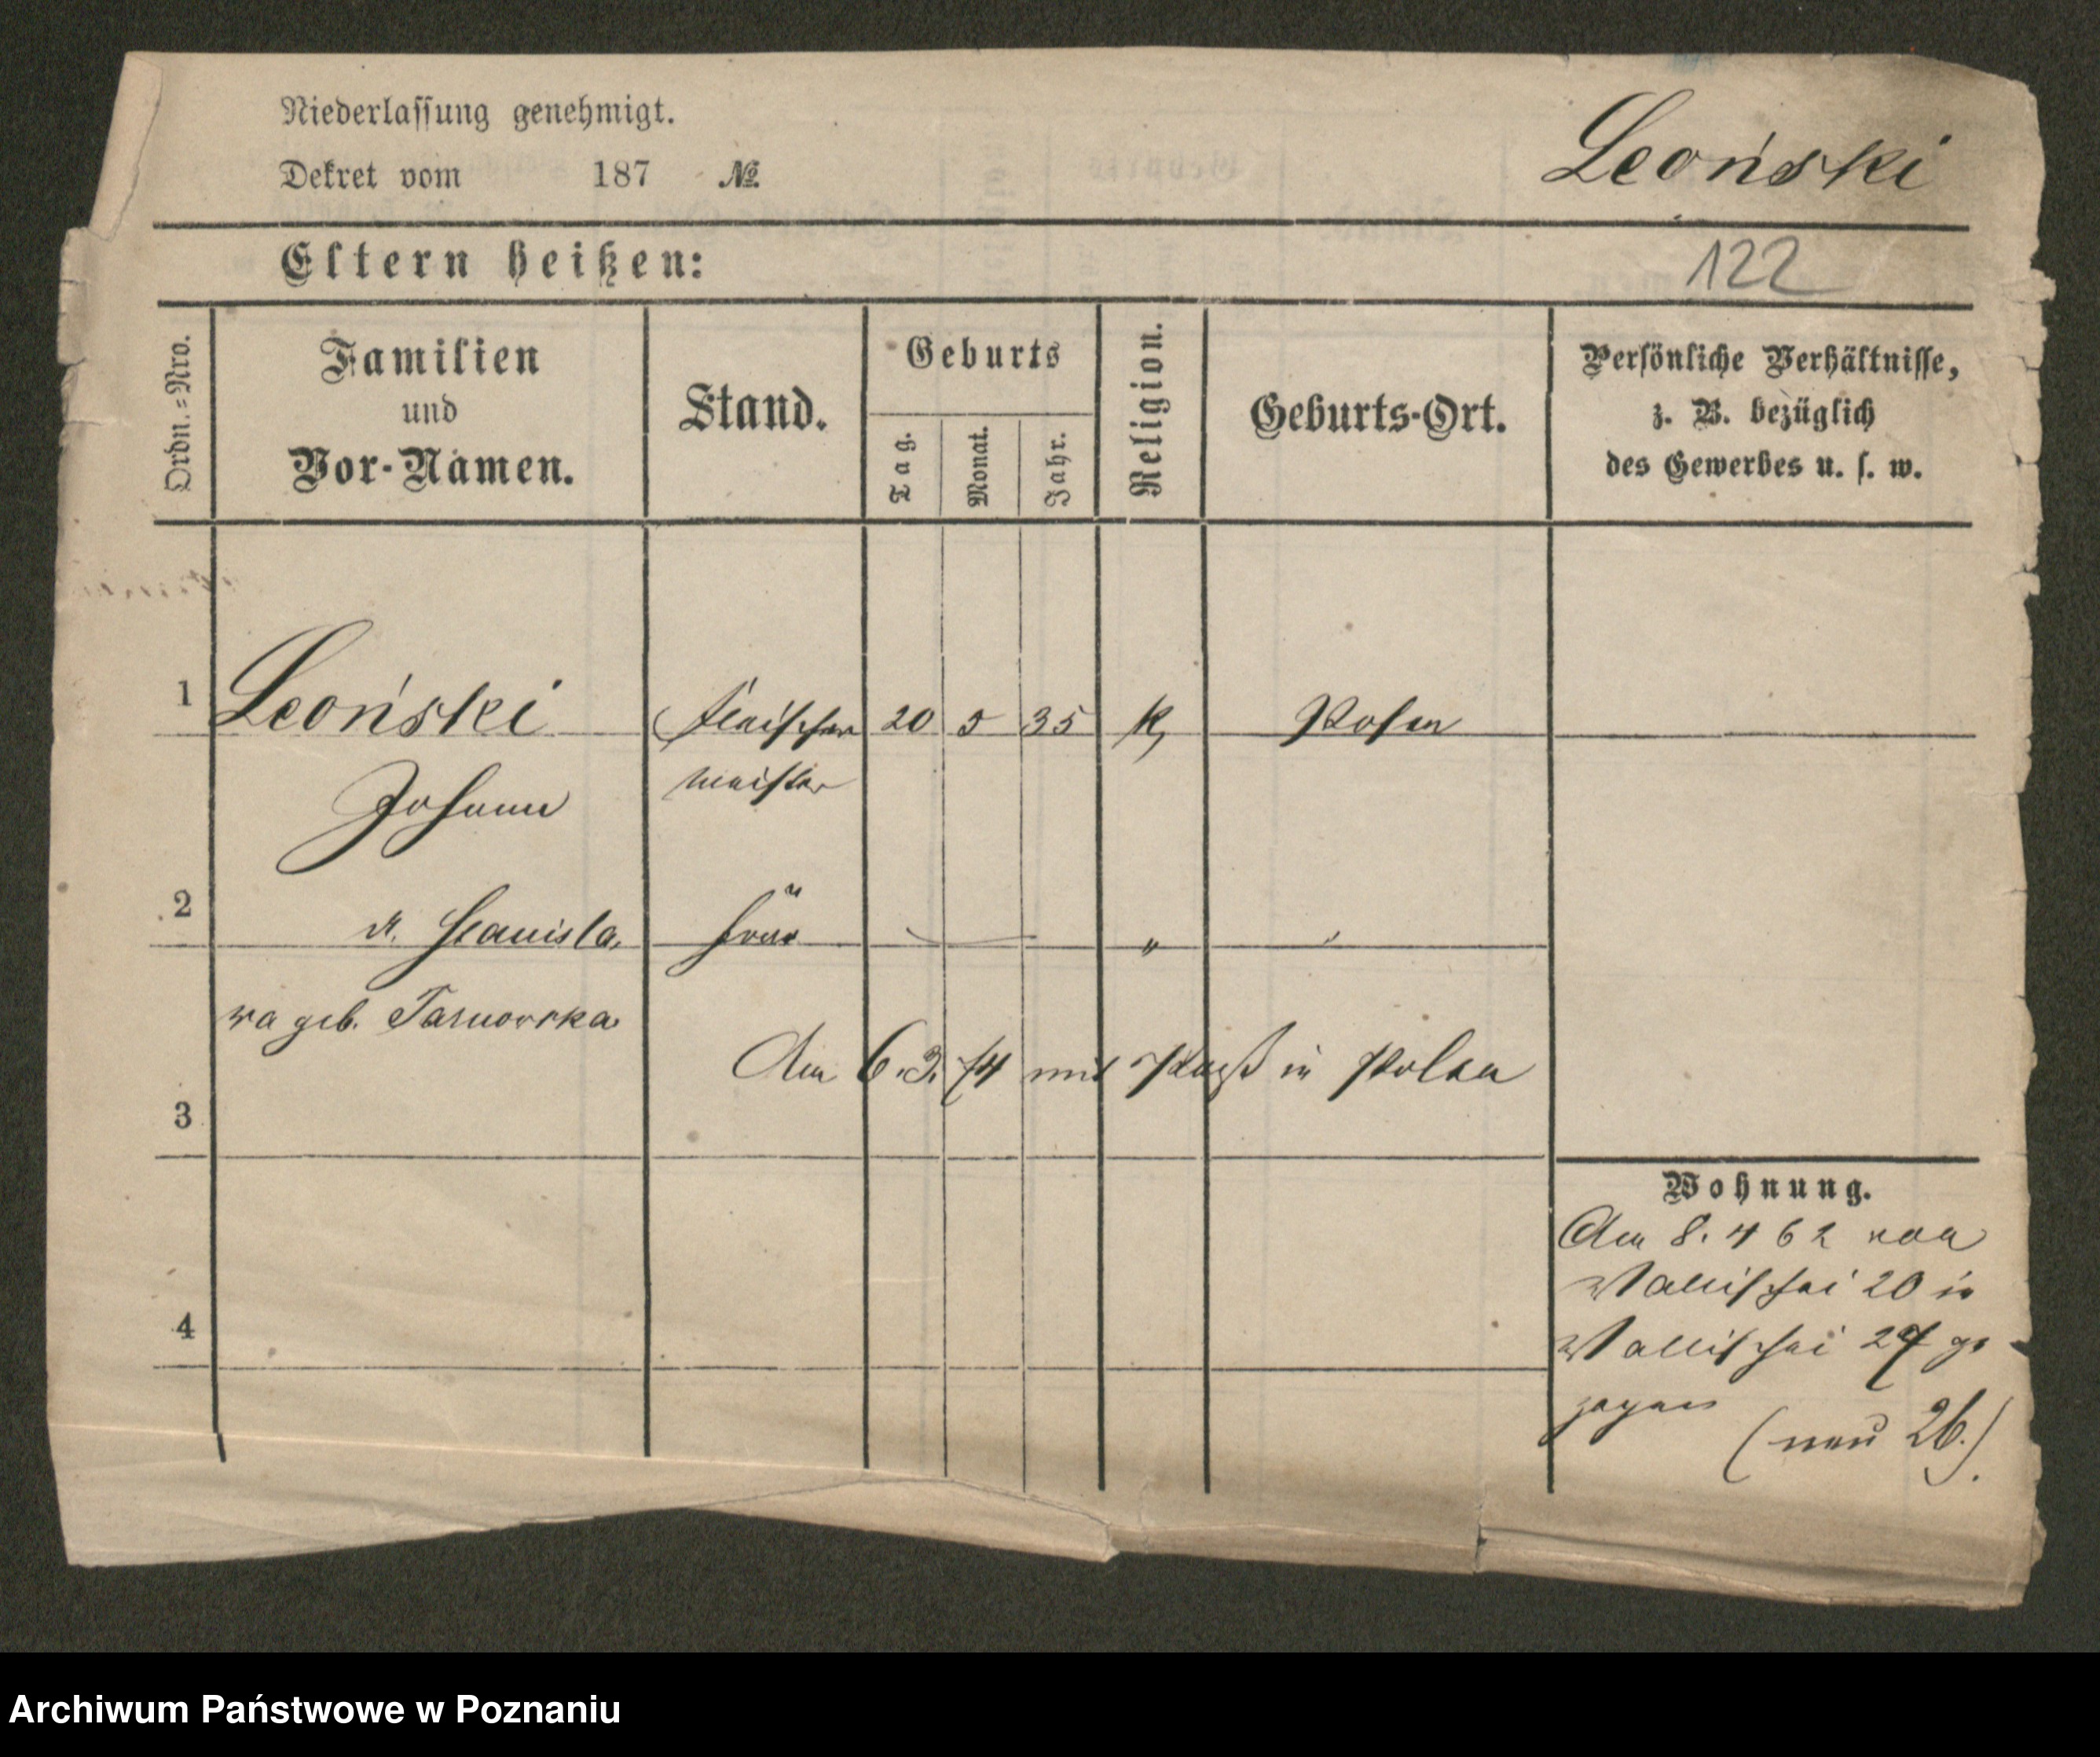 Niederlassung genehmigt.
Dekret vom 187 №
Leoński
Eltern heißen:
122
Ordn.=Nro.
Familien
und
Vor-Namen.
Stand.
Geburts
Tag.
Monat.
Jahr.
Religion.
Geburts-Ort.
Persönliche Verhältnisse,
z. B. bezüglich
des Gewerbes u. s. w.
1 Leoński Fleischer 20 5 35 k, Posen
Johann meister
2 Stanisla, Frau „ „
wa geb. Tarnowska
Am 6.3. 74 mit Paß in Polen
3
4
Wohnung.
Am 8. 4 62 von
Wallischei 20 in
Wallischei 27 ge
zogen
(neu 26.)
Archiwum Państwowe w Poznaniu